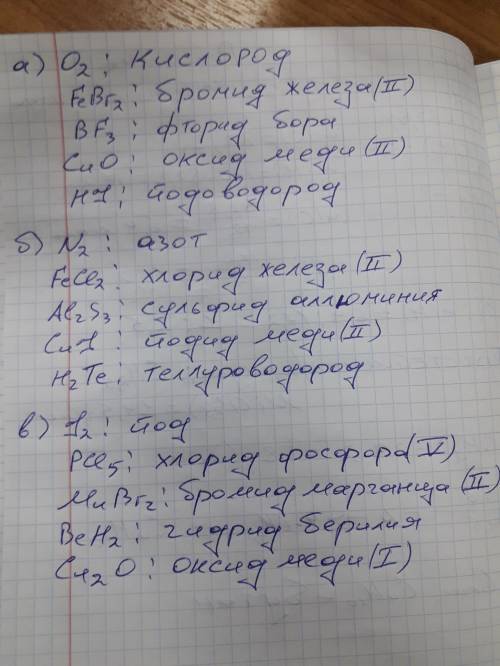 а) O₂ : кислород
FeBr₂ : бромид железа (II)
BF₃ : фторид бора
CuO : оксид меди (II)
HI : йодоводород
б) N₂ : азот
FeCl₂ : хлорид железа (II)
Al₂S₃ : сульфид аллюминия
CuI : йодид меди (II)
H₂Te : теллуроводород
в) I₂ : йод
PCl₅ : хлорид фосфора (V)
MnBr₂ : бромид марганца (II)
BeH₂ : гидрид берилия
Cu₂O : оксид меди (I)